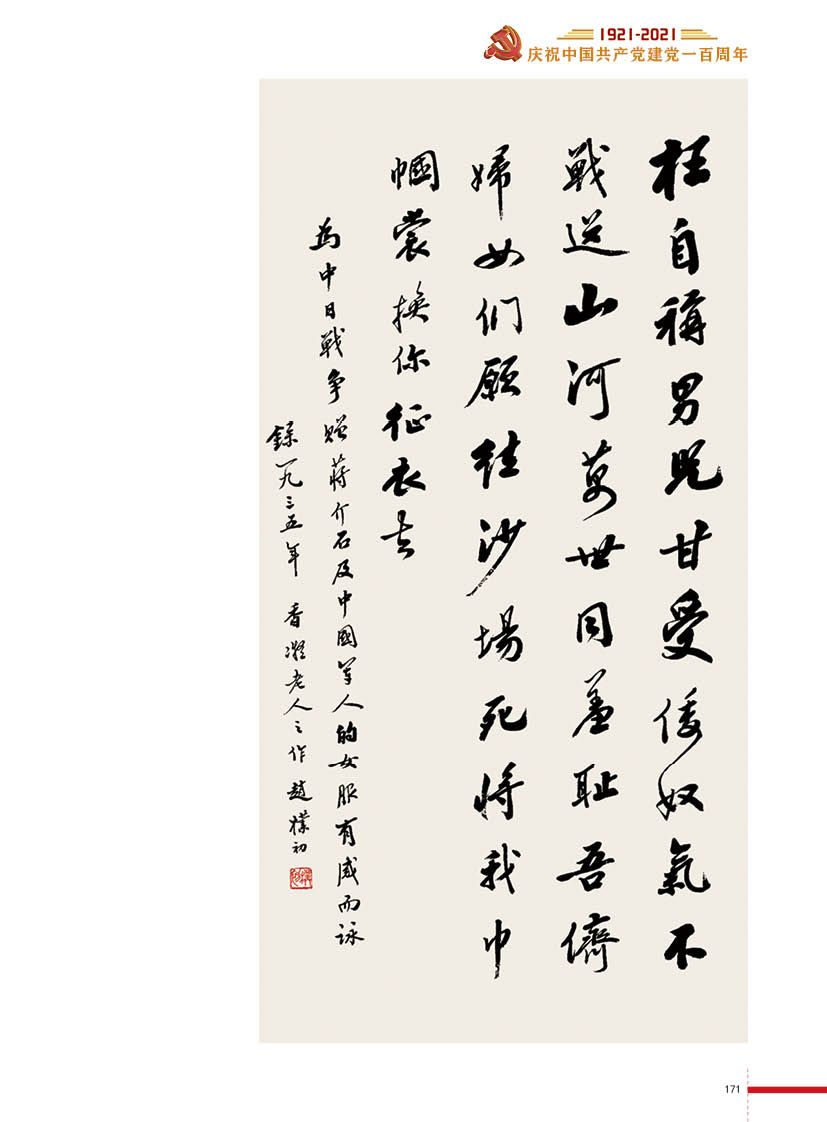 1921-2021
庆祝中国共产党建党一百周年
枉自稱男兒甘受倭奴氣不
戰送山河萬世同羞耻吾儕
婦女們願往沙場死將我巾
幗裳換你征衣去
為中日戰争贈蔣介石及中國軍人的女服有感而詠
錄一九三五年 香凝老人之作 趙樸初
171